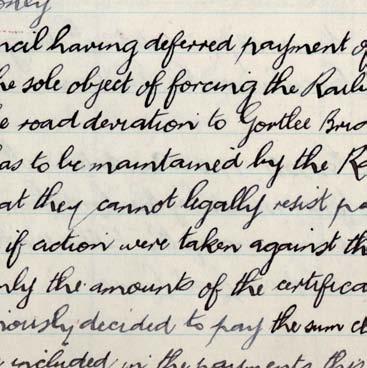 oney
ncil having deferred payment of
he sole object of forcing the Railw
e road deviation to Gortlee Brid
as to be maintained by the Ra
at they cannot legally resist pa
if action were taken against th
nly the amounts of the certifica
iously decided to pay the sum cl
included in the payments this